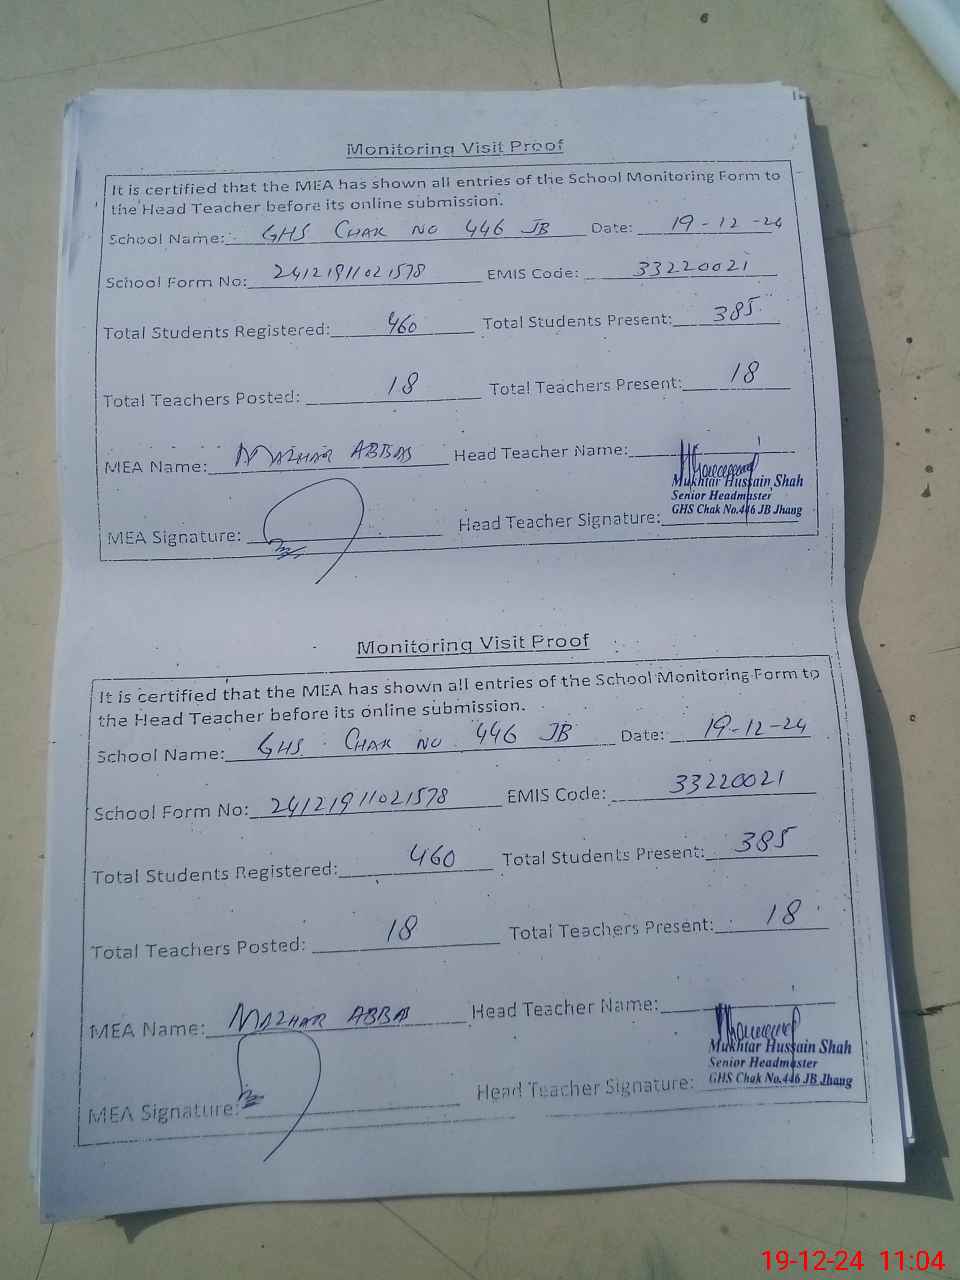 Monitoring Visit Proof
It is certified that the MEA has shown all entries of the School Monitoring Form to
the Head Teacher before its online submission.
School Name: GHS CHAK NO 446 JB Date: 19-12-24
School Form No: 24121911021578 EMIS Code: 33220021
Total Students Registered: 460 Total Students Present: 385
Total Teachers Posted: 18 Total Teachers Present: 18
MEA Name: MAZHAR ABBAS Head Teacher Name:
Mukhtar Hussain Shah
Senior Headmaster
GHS Chak No.446 JB Jhang
MEA Signature: Head Teacher Signature:
Monitoring Visit Proof
It is certified that the MEA has shown all entries of the School Monitoring Form to
the Head Teacher before its online submission.
School Name: GHS CHAK NO 446 JB Date: 19-12-24
School Form No: 24121911021578 EMIS Code: 33220021
Total Students Registered: 460 Total Students Present: 385
Total Teachers Posted: 18 Total Teachers Present: 18
MEA Name: MAZHAR ABBAS Head Teacher Name:
Mukhtar Hussain Shah
Senior Headmaster
GHS Chak No.446 JB Jhang
MEA Signature: Head Teacher Signature:
19-12-24 11:04